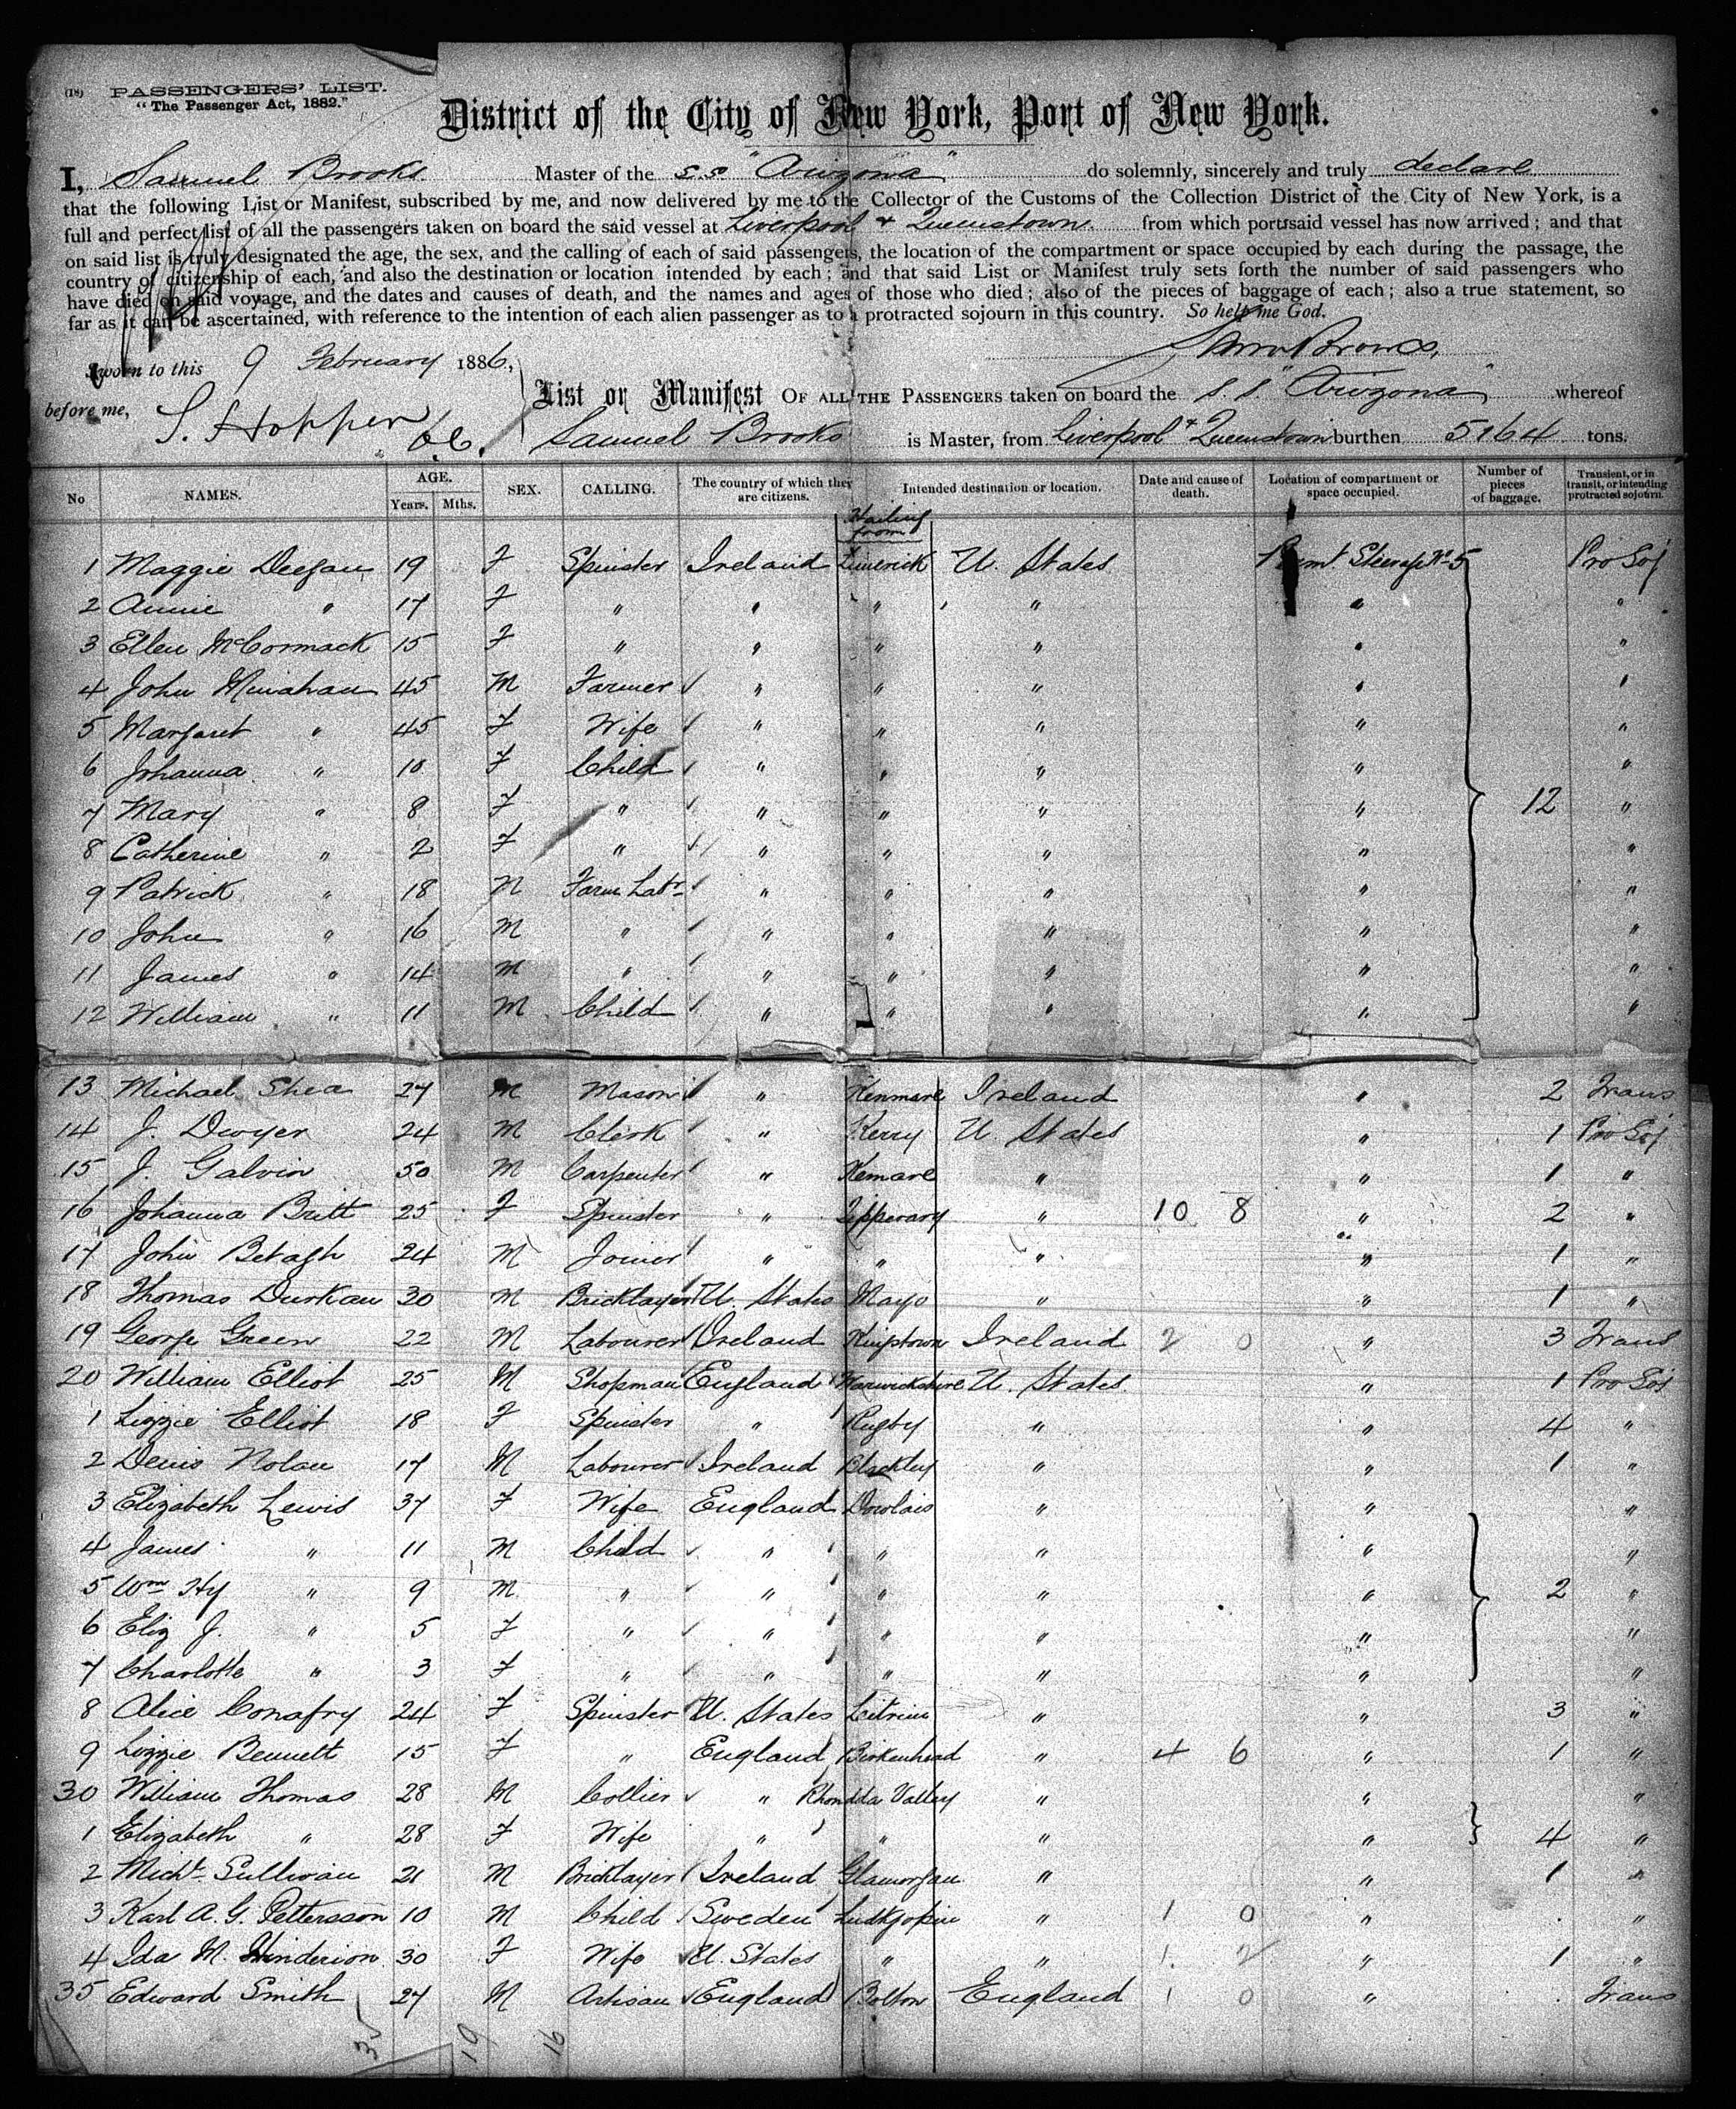 (18) PASSENGERS' LIST.
"The Passenger Act, 1882."
District of the City of New York, Port of New York.
I, Samuel Brooks Master of the S.S. "Arizona" do solemnly, sincerely and truly declare
that the following List or Manifest, subscribed by me, and now delivered by me to the Collector of the Customs of the Collection District of the City of New York, is a
full and perfect list of all the passengers taken on board the said vessel at Liverpool & Queenstown from which port said vessel has now arrived; and that
on said list is truly designated the age, the sex, and the calling of each of said passengers, the location of the compartment or space occupied by each during the passage, the
country of citizenship of each, and also the destination or location intended by each; and that said List or Manifest truly sets forth the number of said passengers who
have died on said voyage, and the dates and causes of death, and the names and ages of those who died; also of the pieces of baggage of each; also a true statement, so
far as it can be ascertained, with reference to the intention of each alien passenger as to a protracted sojourn in this country. So help me God.
Sam Brooks
Sworn to this 9 February 1886,
before me, S. Hopper
List or Manifest OF ALL THE PASSENGERS taken on board the S.S. "Arizona" whereof
Samuel Brooks is Master, from Liverpool & Queenstown burthen 5164 tons.
No NAMES. AGE. Years. Mths. SEX. CALLING. The country of which they are citizens. Intended destination or location. Date and cause of death. Location of compartment or space occupied. Number of pieces of baggage. Transient, or in transit, or intending protracted sojourn.
Hailing from
1 Maggie Deegan 19 F Spinster Ireland Limerick U. States Steerage No 5 Pro Soj
2 Annie " 17 F " " " " " "
3 Ellen McCormack 15 F " " " " " "
4 John Minahan 45 M Farmer " " " " "
5 Margaret " 45 F Wife " " " " "
6 Johanna " 10 F Child " " " " "
7 Mary " 8 F " " " " " 12 "
8 Catherine " 2 F " " " " " "
9 Patrick " 18 M Farm Labr " " " " "
10 John " 16 M " " " " " "
11 James " 14 M " " " " " "
12 William " 11 M Child " " " " "
13 Michael Shea 27 M Mason " Kenmare Ireland " 2 Trans
14 J. Dwyer 24 M Clerk " Kerry U. States " 1 Pro Soj
15 J. Galvin 50 M Carpenter " Kemare " " 1 "
16 Johanna Britt 25 F Spinster " Tipperary " 10 8 " 2 "
17 John Betagh 24 M Joiner " " " " 1 "
18 Thomas Durkan 30 M Bricklayer U. States Mayo " " 1 "
19 George Green 22 M Labourer Ireland Kingstown Ireland 2 0 " 3 Trans
20 William Elliot 25 M Shopman England Warwickshire U. States " 1 Pro Soj
1 Lizzie Elliot 18 F Spinster " Rugby " " 4 "
2 Denis Nolan 17 M Labourer Ireland Blackley " " 1 "
3 Elizabeth Lewis 37 F Wife England Dowlais " " "
4 James " 11 M Child " " " " "
5 Wm Hy " 9 M " " " " " 2 "
6 Eliz J. " 5 F " " " " " "
7 Charlotte " 3 F " " " " " "
8 Alice Conafry 24 F Spinster U. States Leitrim " " 3 "
9 Lizzie Bennett 15 F " England Birkenhead " 4 6 " 1 "
30 William Thomas 28 M Collier " Rhondda Valley " " "
1 Elizabeth " 28 F Wife " " " " 4 "
2 Michl Sullivan 21 M Bricklayer Ireland Glamorgan " " 1 "
3 Karl A. G. Pettersson 10 M Child Sweden " 1 0 " "
4 Ida M. 30 F Wife U. States " " 1 2 " 1 "
35 Edward Smith 27 M Artisan England Bolton England 1 0 " Trans
35 19 16